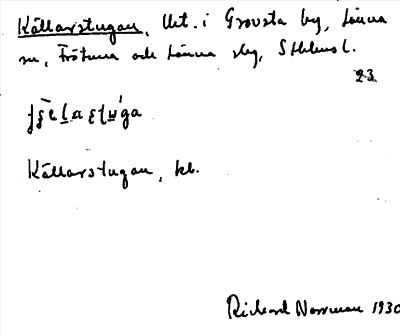 Källarstugan, Urt. i Grovsta by, Länna
sn, Frötuna och Länna slg, Sthlms l.
23
Källarstugan, kb.
Richard Norrman 1930